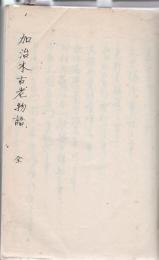 加治木古老物語
全